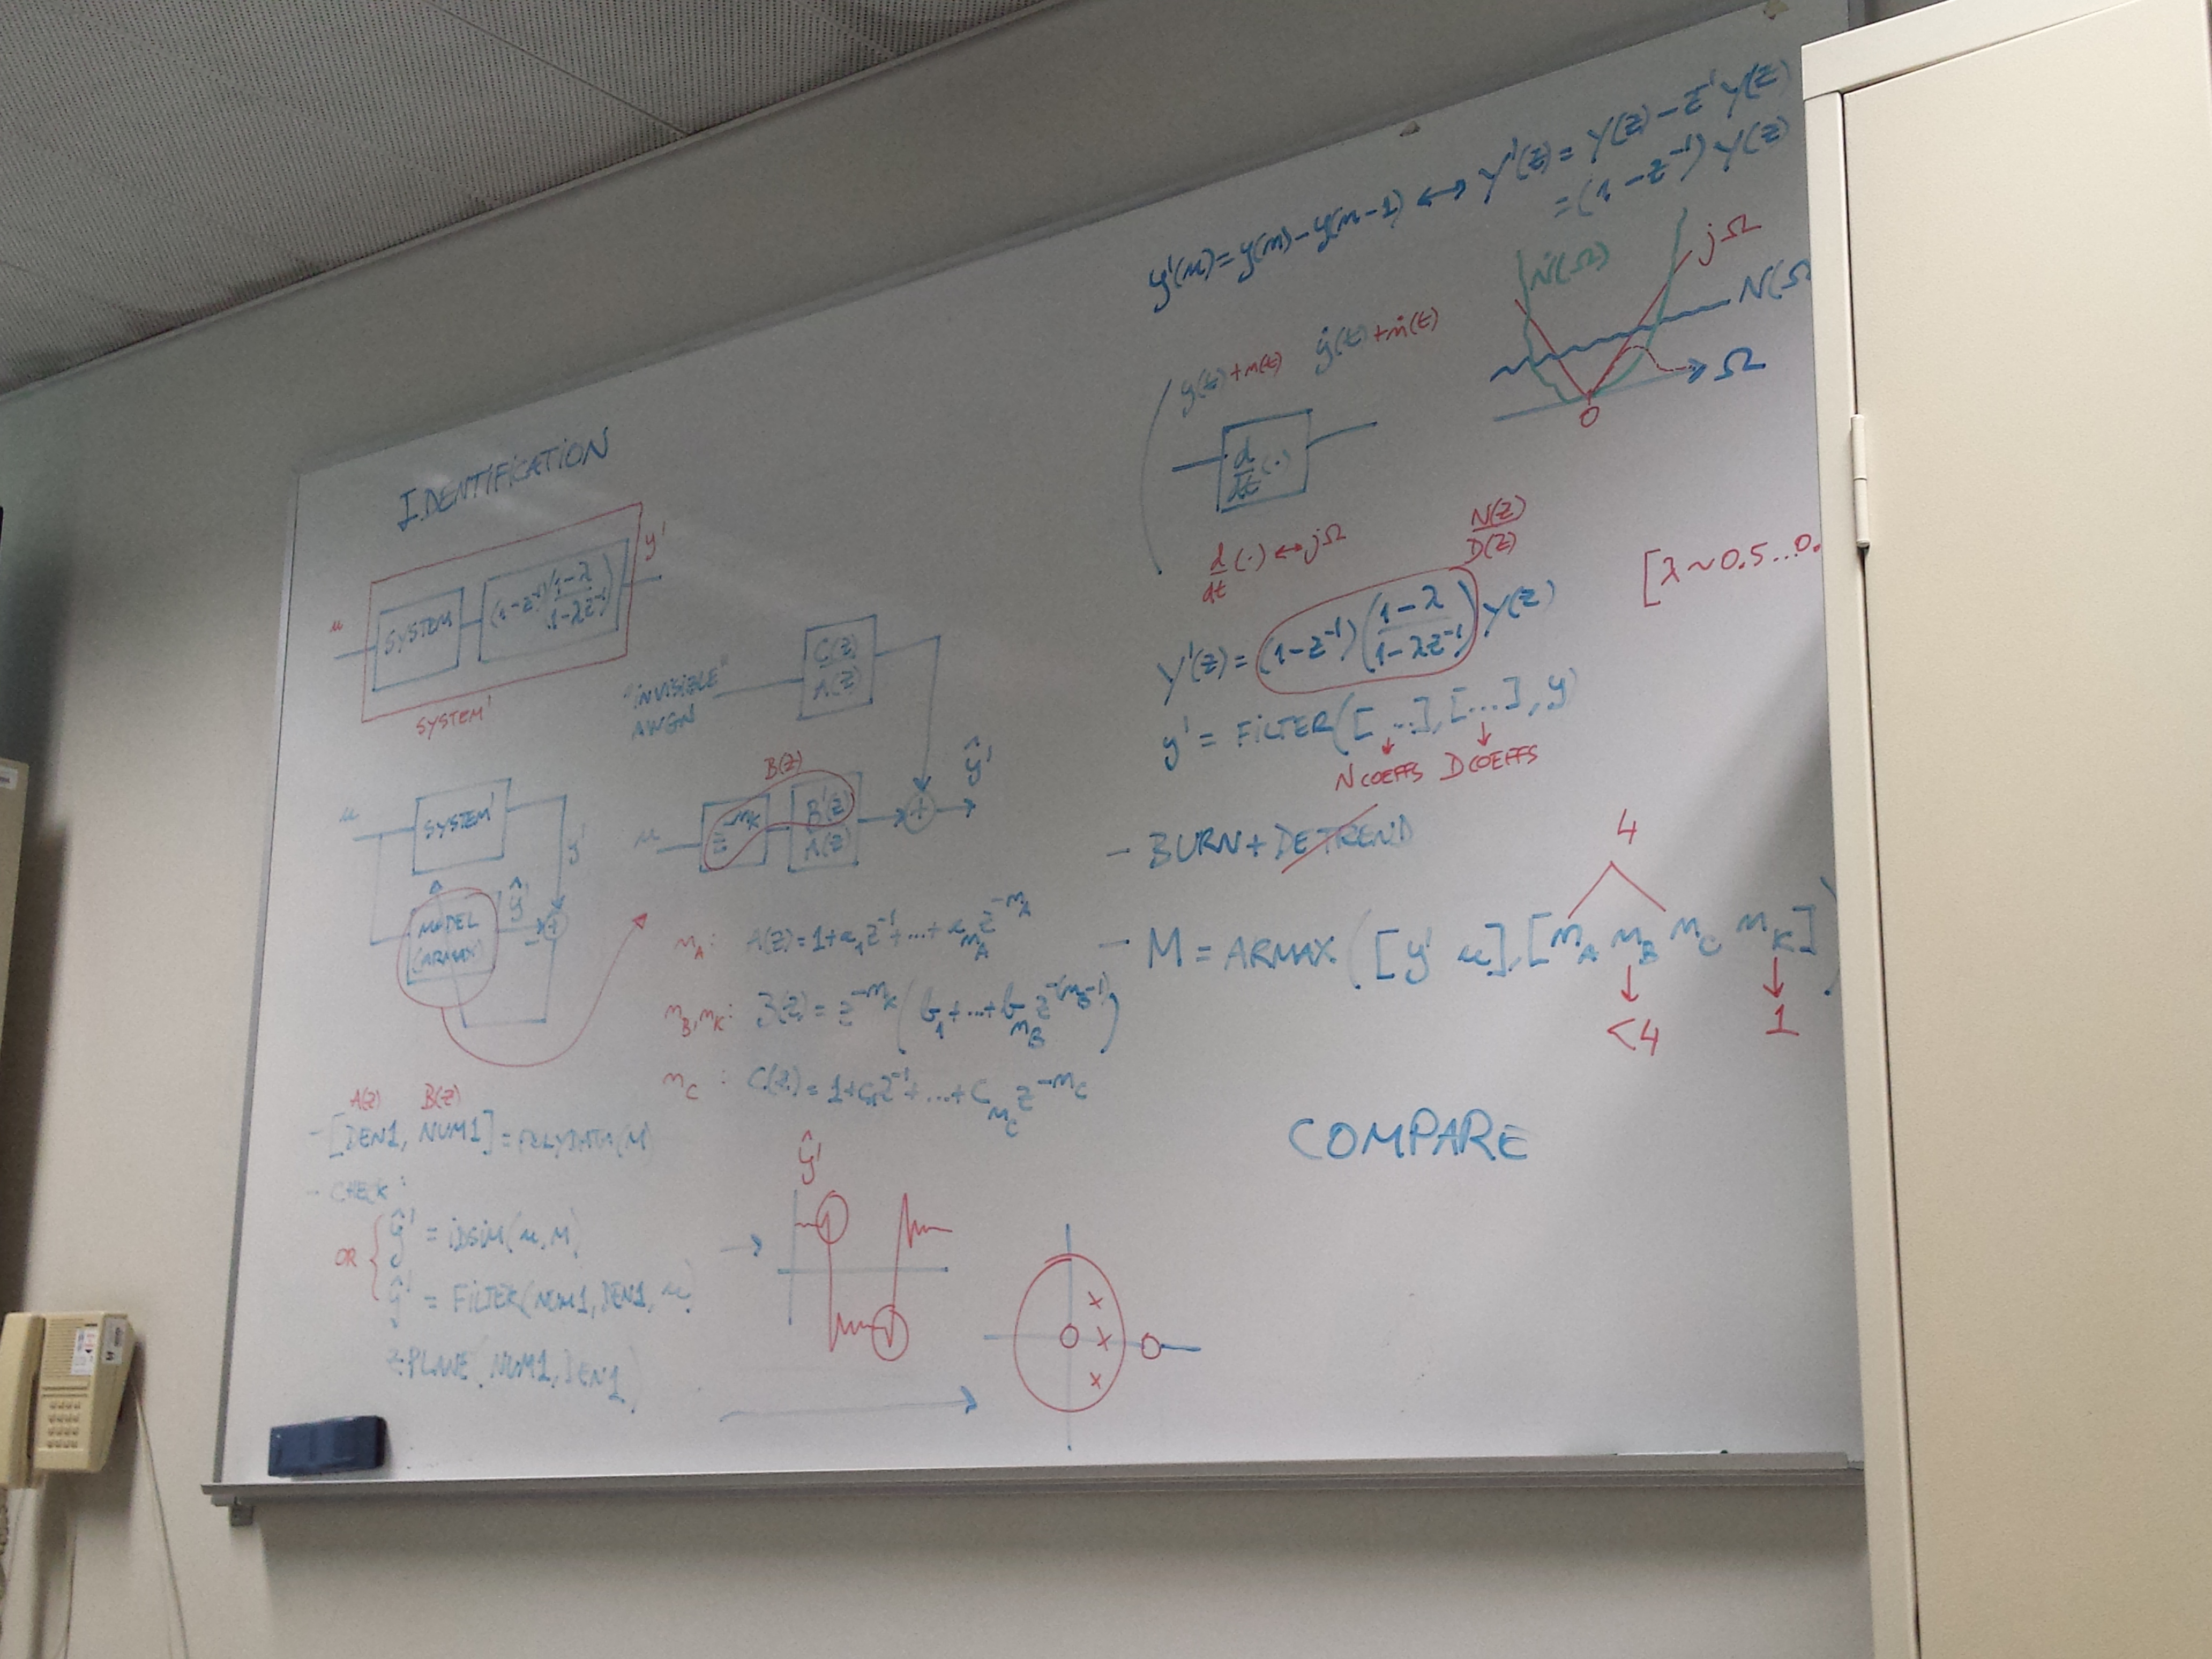 IDENTIFICATION
u
SYSTEM
(1-z⁻¹)(1-λ / 1-λz⁻¹)
y'
SYSTEM'
"INVISIBLE"
AWGN
C(z)
A(z)
u
SYSTEM'
y'
MODEL
(ARMAX)
ŷ'
+
-
B(z)
u
z^-nK
B'(z)
A(z)
+
ŷ'
nA: A(z) = 1+a₁z⁻¹+...+a_nA z^-nA
nB, nK: B(z) = z^-nK (b₁+...+b_nB z^-(nB-1))
nC: C(z) = 1+c₁z⁻¹+...+c_nC z^-nC
A(z) B(z)
- [DEN1, NUM1] = POLYDATA(M)
- CHECK:
OR { ŷ' = iDSiM(u, M)
ŷ' = FiLTER(NUM1, DEN1, u)
ZPLANE(NUM1, DEN1)
ŷ'
y'(n) = y(n) - y(n-1) ↔ Y'(z) = Y(z) - z⁻¹Y(z)
= (1-z⁻¹)Y(z)
y(t)+n(t) ẏ(t)+ṅ(t)
d/dt (·)
d/dt (·) ↔ jΩ
Ṅ(Ω)
jΩ
N(Ω
Ω
0
N(z)
D(z)
Y'(z) = (1-z⁻¹)(1-λ / 1-λz⁻¹) Y(z)
[λ~0.5...0.
y' = FiLTER([...], [...], y)
N COEFFS D COEFFS
- BURN + DETREND
4
- M = ARMAX([y' u], [nA nB nC nK])
<4 1
COMPARE